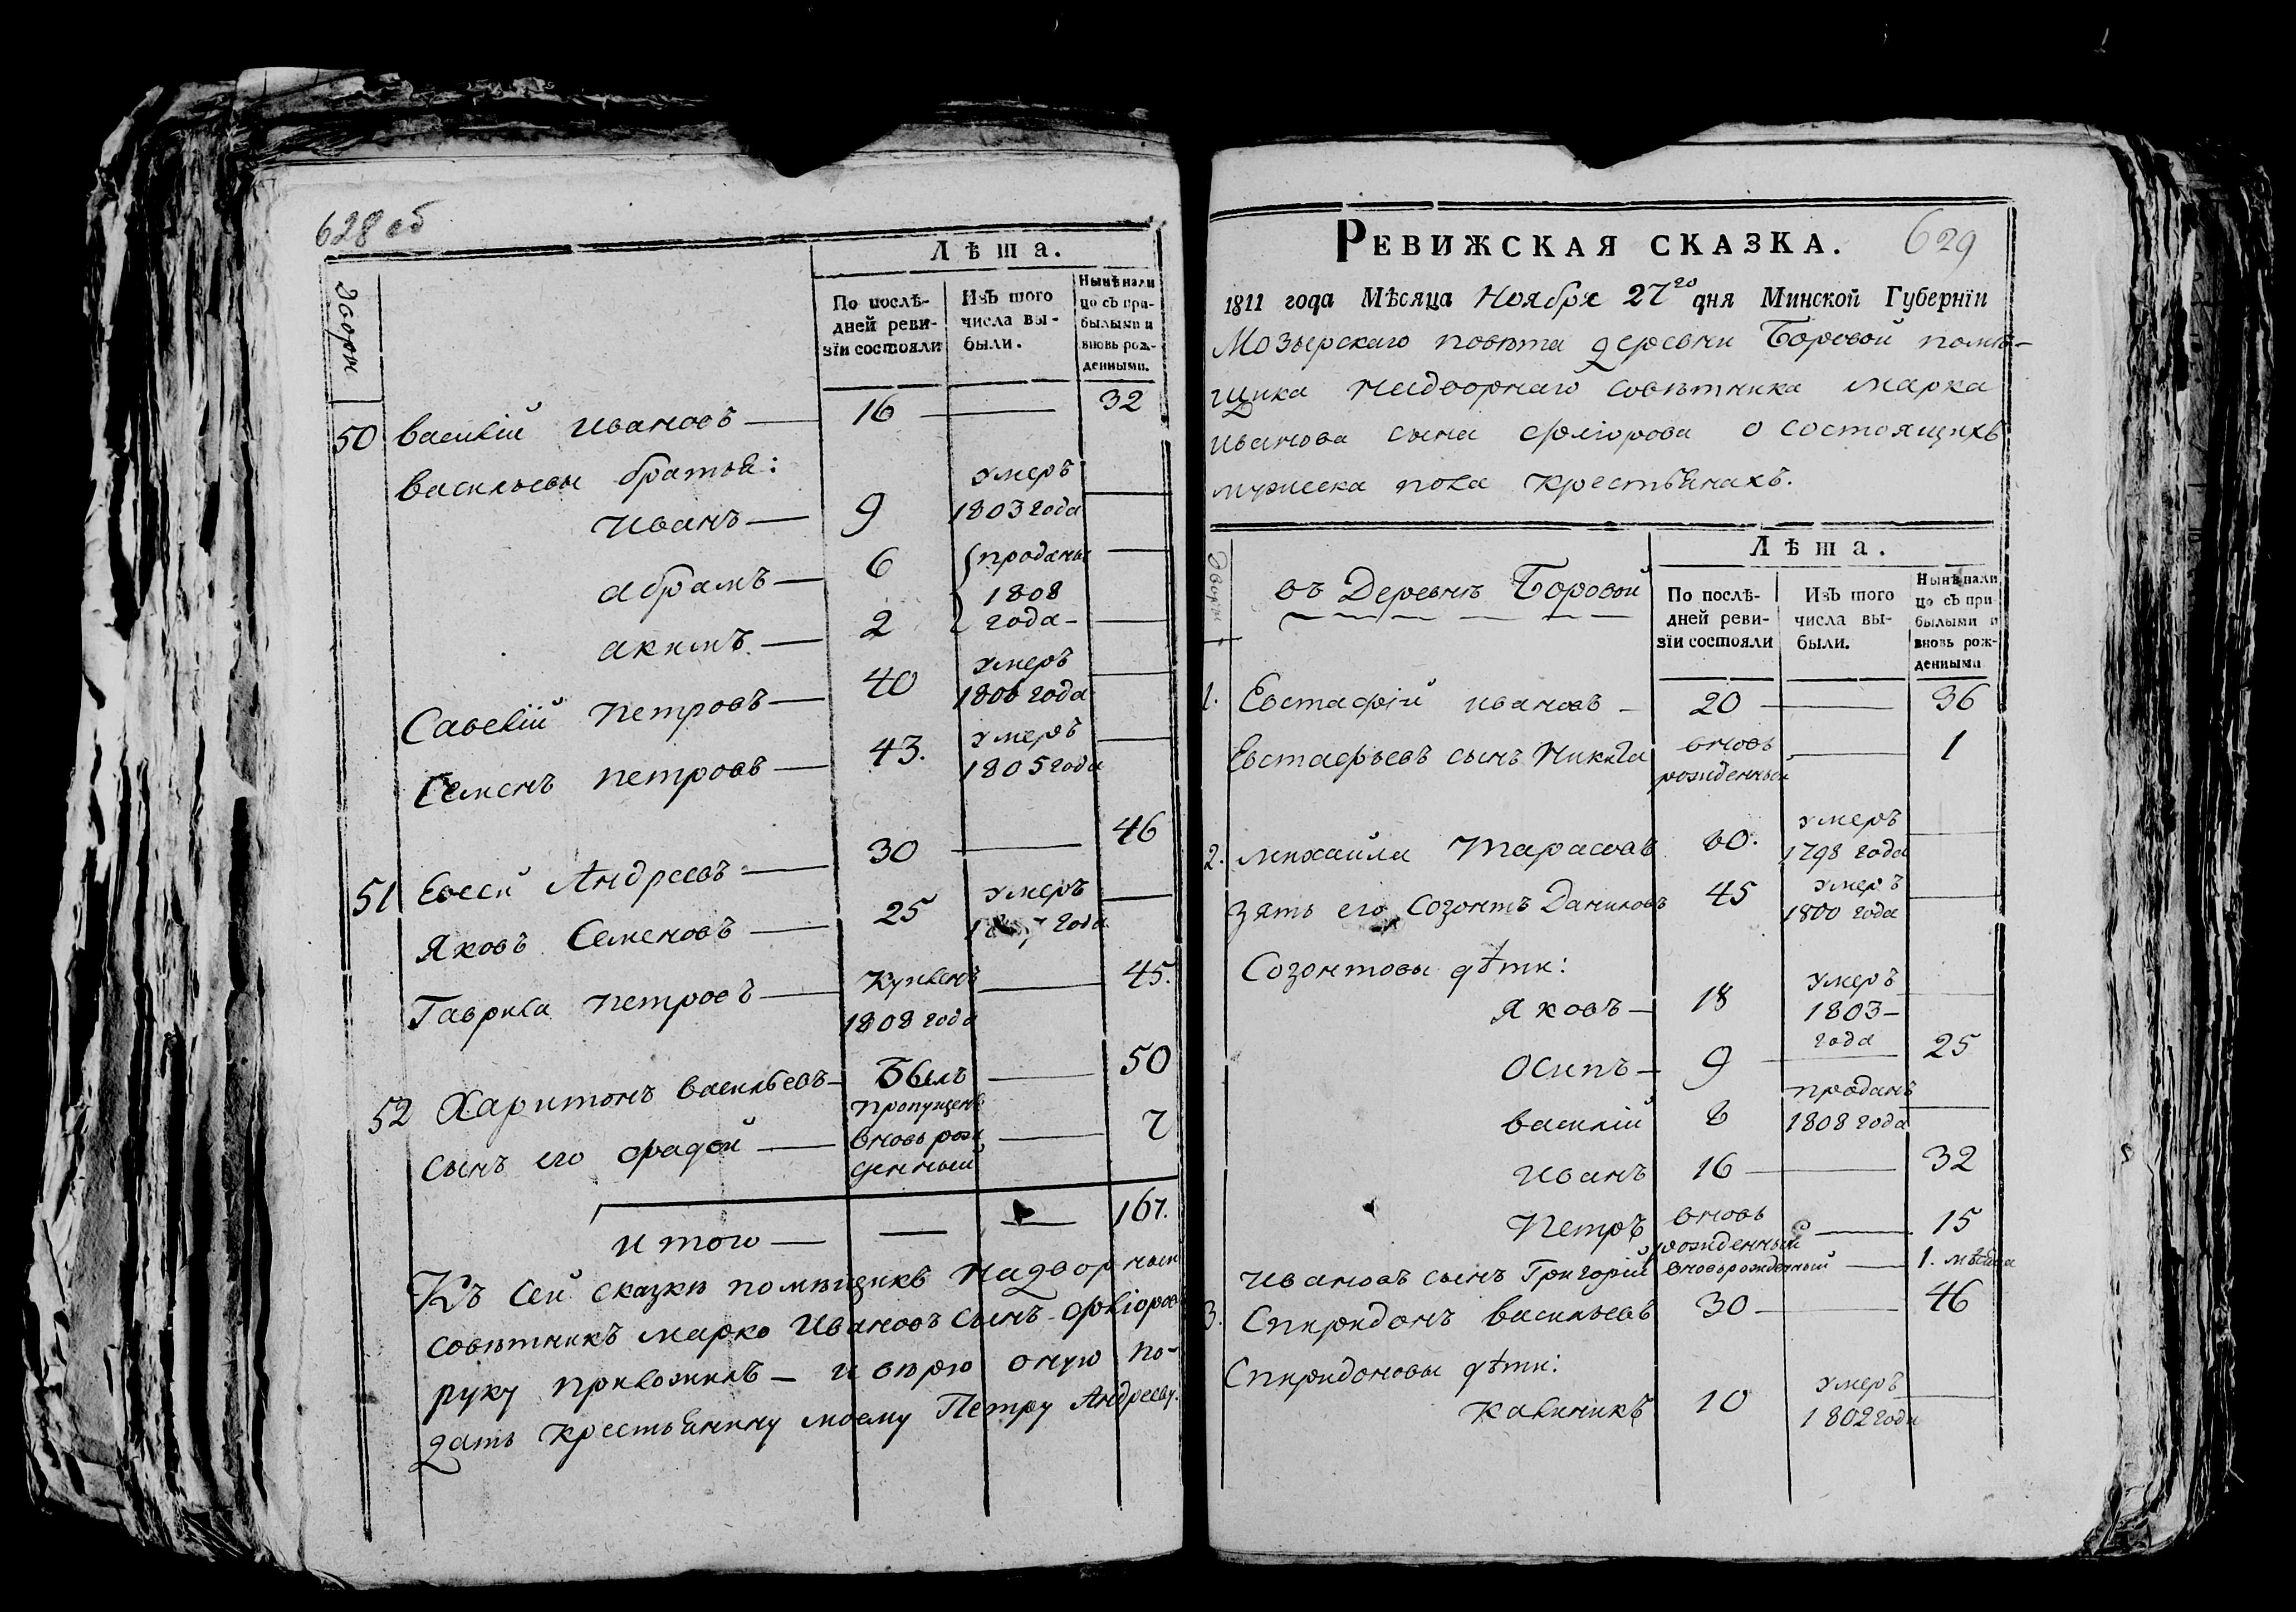 628 об
Лѣта.
Дворы
По послѣ-
дней реви-
зїи состояли
Изъ того
числа вы-
были.
Нынѣ нали
цо съ при-
былыми и
вновь рож-
денными.
50 василій ивановъ — 16 — 32
васильевы братья:
иванъ — 9 умеръ 1803 года —
абрамъ — 6 проданы —
1808
акимъ — 2 года —
Савелій петровъ — 40 умеръ 1806 года —
Семенъ петровъ — 43. умеръ 1805 года —
51 Евсей Андреевъ — 30 — 46
Яковъ Семеновъ — 25 умеръ года —
Гаврила петровъ — Купленъ 1808 года — 45.
52 Харитонъ васильевъ — Былъ пропущенъ — 50
сынъ его фадей — вновь рож денный — 7
итого — — — 167.
Къ Сей сказке помѣщикъ надворный
совѣтникъ марко Ивановъ сынъ флiоровъ
руку приложилъ — и вѣрю оную по-
дать крестьянину моему Петру Андрееву.
Ревижская сказка. 629
1811 года Мѣсяца Ноября 27го дня Минской Губернїи
Мозырскаго повѣта деревни Боровой помѣ-
щика надворнаго совѣтника марка
иванова сына флiорова о состоящихъ
мужеска пола крестьянахъ.
Дворы
въ Деревнѣ Боровой
Лѣта.
По послѣ-
дней реви-
зїи состояли
Изъ того
числа вы-
были.
Нынѣ нали
цо съ при
былыми и
вновь рож-
денными
1. Евстафій ивановъ — 20 — 36
Евстафьевъ сынъ Никита вновь рожденный — 1
2. михайла Тарасовъ 60. умеръ 1798 года —
зять его Созонтъ Даниловъ 45 умеръ 1800 года —
Созонтовы дѣти:
Яковъ — 18 умеръ 1803 — года —
Осипъ — 9 — 25
василій 6 проданъ 1808 года —
Иванъ 16 — 32
Петръ вновь рожденный — 15
ивановъ сынъ Григорій вновьрожденный — 1. мѣсяца
3. Спиридонъ васильевъ 30 — 46
Спиридоновы дѣти:
калиникъ 10 умеръ 1802 года —